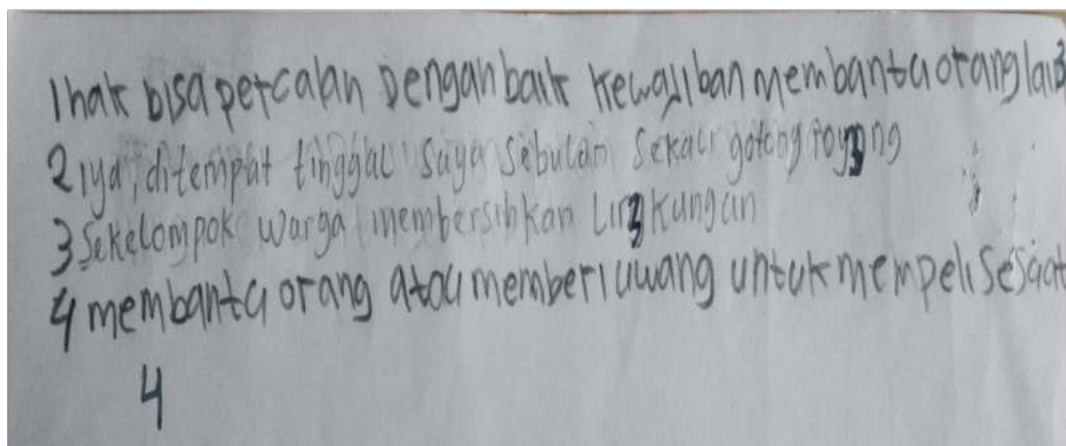 1 hak bisa percalan Dengan baik kewajiban membantu orang lai 3
2 iya, ditempat tinggal saya sebulan sekali gotong royong 3
3 Sekelompok warga membersihkan Lingkungan 3
4 membantu orang atau memberi uwang untuk mempeli sesuat
4